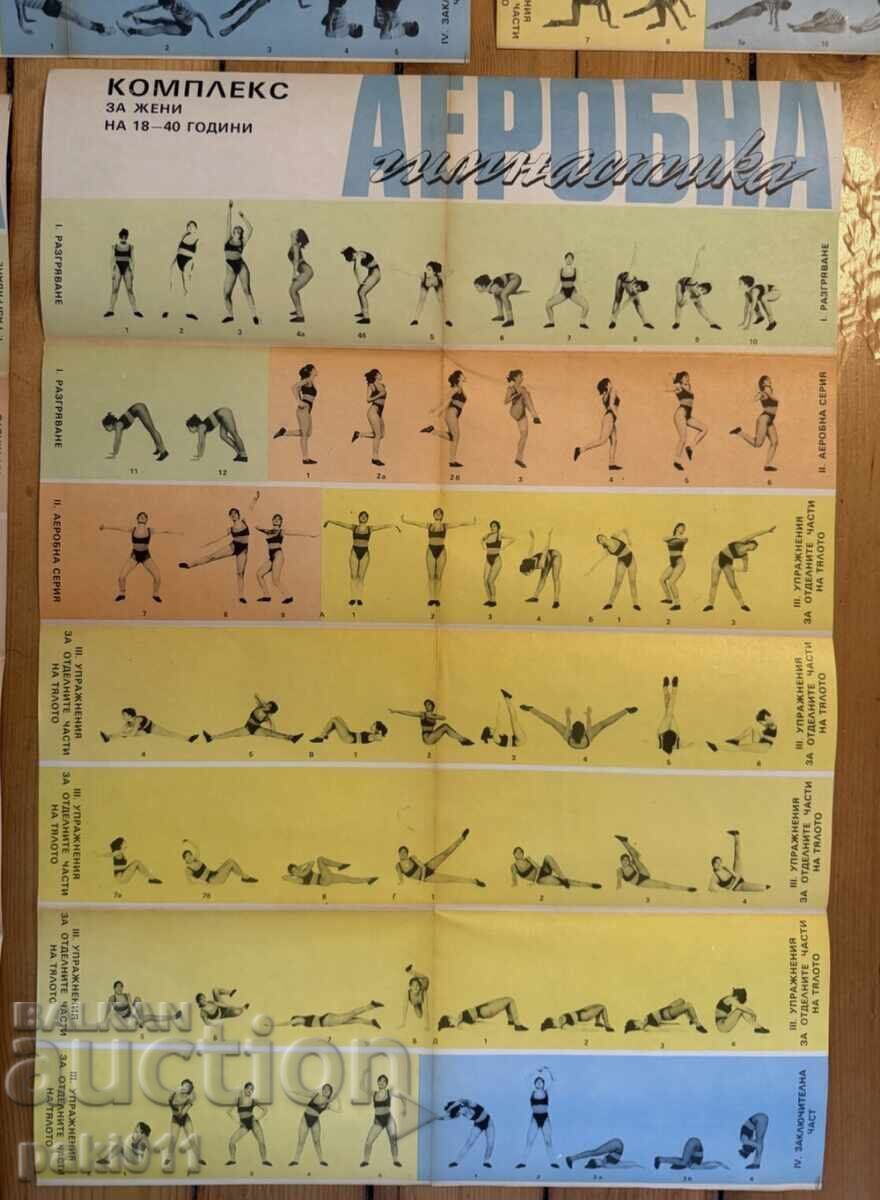 IV. ЗАКЛ
КОМПЛЕКС
ЗА ЖЕНИ
НА 18—40 ГОДИНИ
АЕРОБНА
гимнастика
I. РАЗГРЯВАНЕ
1 2 3 4а 4б 5 6 7 8 9 10
I. РАЗГРЯВАНЕ
I. РАЗГРЯВАНЕ
11 12
1 2а 2б 3 4 5 6
II. АЕРОБНА СЕРИЯ
II. АЕРОБНА СЕРИЯ
7 8 9
А 1 2 3 4 Б 1 2 3
III. УПРАЖНЕНИЯ
ЗА ОТДЕЛНИТЕ ЧАСТИ
НА ТЯЛОТО
III. УПРАЖНЕНИЯ
ЗА ОТДЕЛНИТЕ ЧАСТИ
НА ТЯЛОТО
4 5 В 1 2 3 4 5 6
III. УПРАЖНЕНИЯ
ЗА ОТДЕЛНИТЕ ЧАСТИ
НА ТЯЛОТО
III. УПРАЖНЕНИЯ
ЗА ОТДЕЛНИТЕ ЧАСТИ
НА ТЯЛОТО
7а 7б 8 Г 1 2 3 4
III. УПРАЖНЕНИЯ
ЗА ОТДЕЛНИТЕ ЧАСТИ
НА ТЯЛОТО
III. УПРАЖНЕНИЯ
ЗА ОТДЕЛНИТЕ ЧАСТИ
НА ТЯЛОТО
5 6 7 8 Д 1 2 3 4
III. УПРАЖНЕНИЯ
ЗА ОТДЕЛНИТЕ ЧАСТИ
НА ТЯЛОТО
III. УПРАЖНЕНИЯ
ЗА ОТДЕЛНИТЕ ЧАСТИ
НА ТЯЛОТО
1 2
IV. ЗАКЛЮЧИТЕЛНА
ЧАСТ
BALKAN
auction
paki911